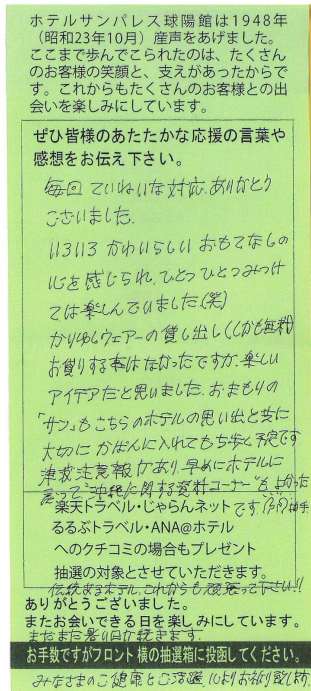 ホテルサンパレス球陽館は1948年
（昭和23年10月）産声をあげました。
ここまで歩んでこられたのは、たくさん
のお客様の笑顔と、支えがあったからで
す。これからもたくさんのお客様との出
会いを楽しみにしています。
ぜひ皆様のあたたかな応援の言葉や
感想をお伝え下さい。
毎回ていねいな対応、ありがとう
ございました。
いろいろかわいらしいおもてなしの
心を感じられ、ひとつひとつみつけ
ては楽しんでいました（笑）
かりゆしウェアーの貸し出し（しかも無料）
お借りする事はなかったですが、楽しい
アイデアだと思いました。おまもりの
「サン」もこちらのホテルの思い出と共に
大切にかばんに入れてもち歩く予定です
津波注意報があり、早めにホテルに
戻って"沖縄に関する資料コーナー"もよかった
楽天トラベル・じゃらんネット
です
るるぶトラベル・ANA@ホテル
へのクチコミの場合もプレゼント
抽選の対象とさせていただきます。
伝統あるホテル、これからも頑張って下さい!!
ありがとうございました。
またお会いできる日を楽しみにしています。
まだまだ暑い日が続きます。
お手数ですがフロント横の抽選箱に投函してください。
みなさまのご健康とご活躍 心よりお祈り致します